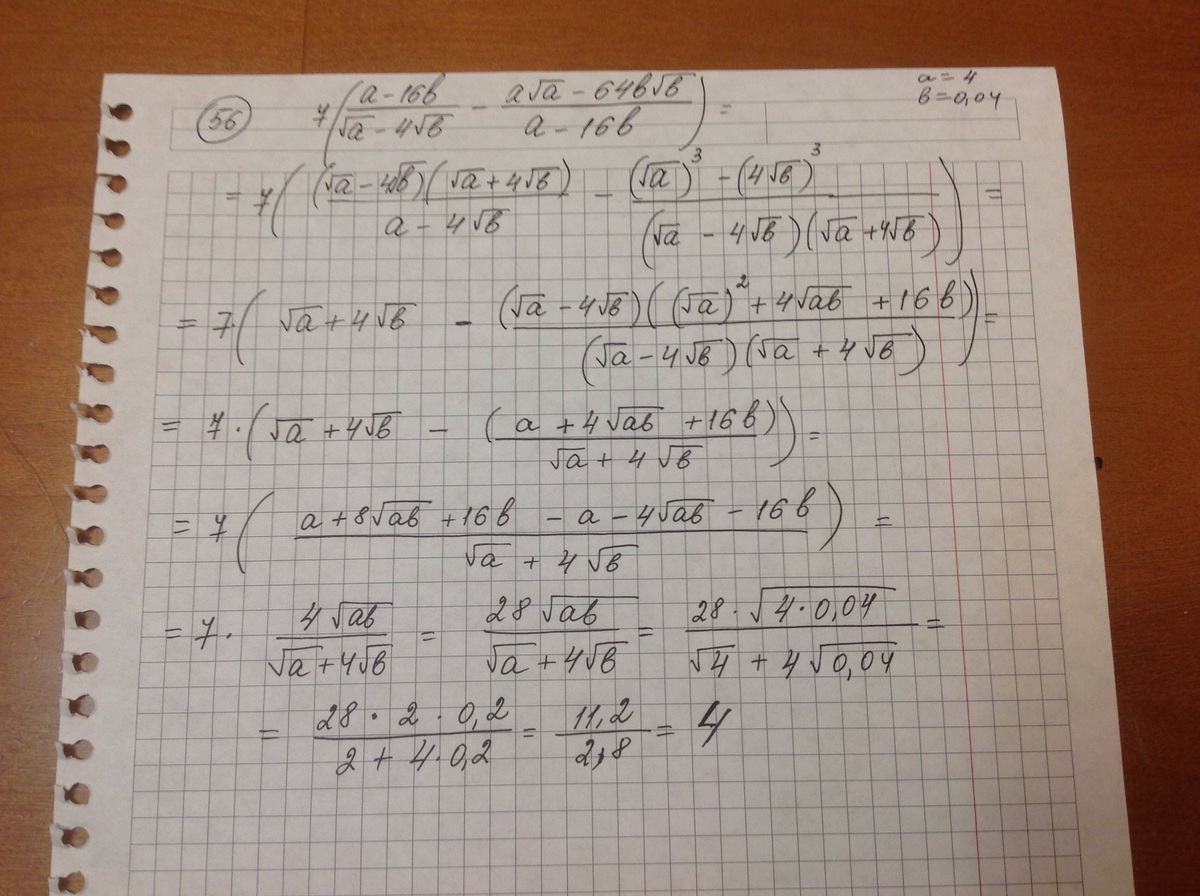 56 7((a-16b)/(√a-4√b) - (a√a-64b√b)/(a-16b)) =
a=4
b=0,04
= 7((√a-4√b)(√a+4√b)/(a-4√b) - ((√a)³-(4√b)³)/((√a-4√b)(√a+4√b))) =
= 7(√a+4√b - (√a-4√b)((√a)²+4√ab+16b)/((√a-4√b)(√a+4√b))) =
= 7·(√a+4√b - (a+4√ab+16b)/(√a+4√b)) =
= 7((a+8√ab+16b-a-4√ab-16b)/(√a+4√b)) =
= 7· 4√ab/(√a+4√b) = 28√ab/(√a+4√b) = 28·√(4·0,04)/(√4+4√0,04) =
= (28·2·0,2)/(2+4·0,2) = 11,2/2,8 = 4